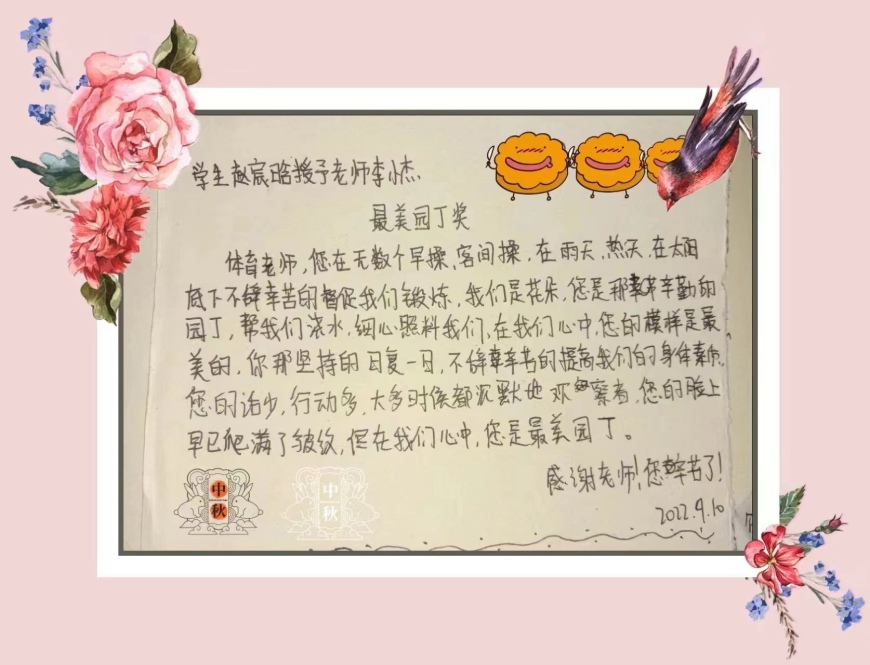 学生赵宸晧授予老师李小杰
最美园丁奖
体育老师,您在无数个早操,客间操,在雨天,热天,在太阳
底下不辞幸苦的督促我们锻炼,我们是花朵,您是那辛勤的
园丁,帮我们浇水,细心照料我们,在我们心中,您的模样是最
美的,你那坚持的日复一日,不辞辛苦的提高我们的身体素质,
您的话少,行动多,大多时候都沉默地观察着,您的脸上
早已爬满了皱纹,但在我们心中,您是最美园丁。
感谢老师!您辛苦了!
2022.9.10
中秋
中秋